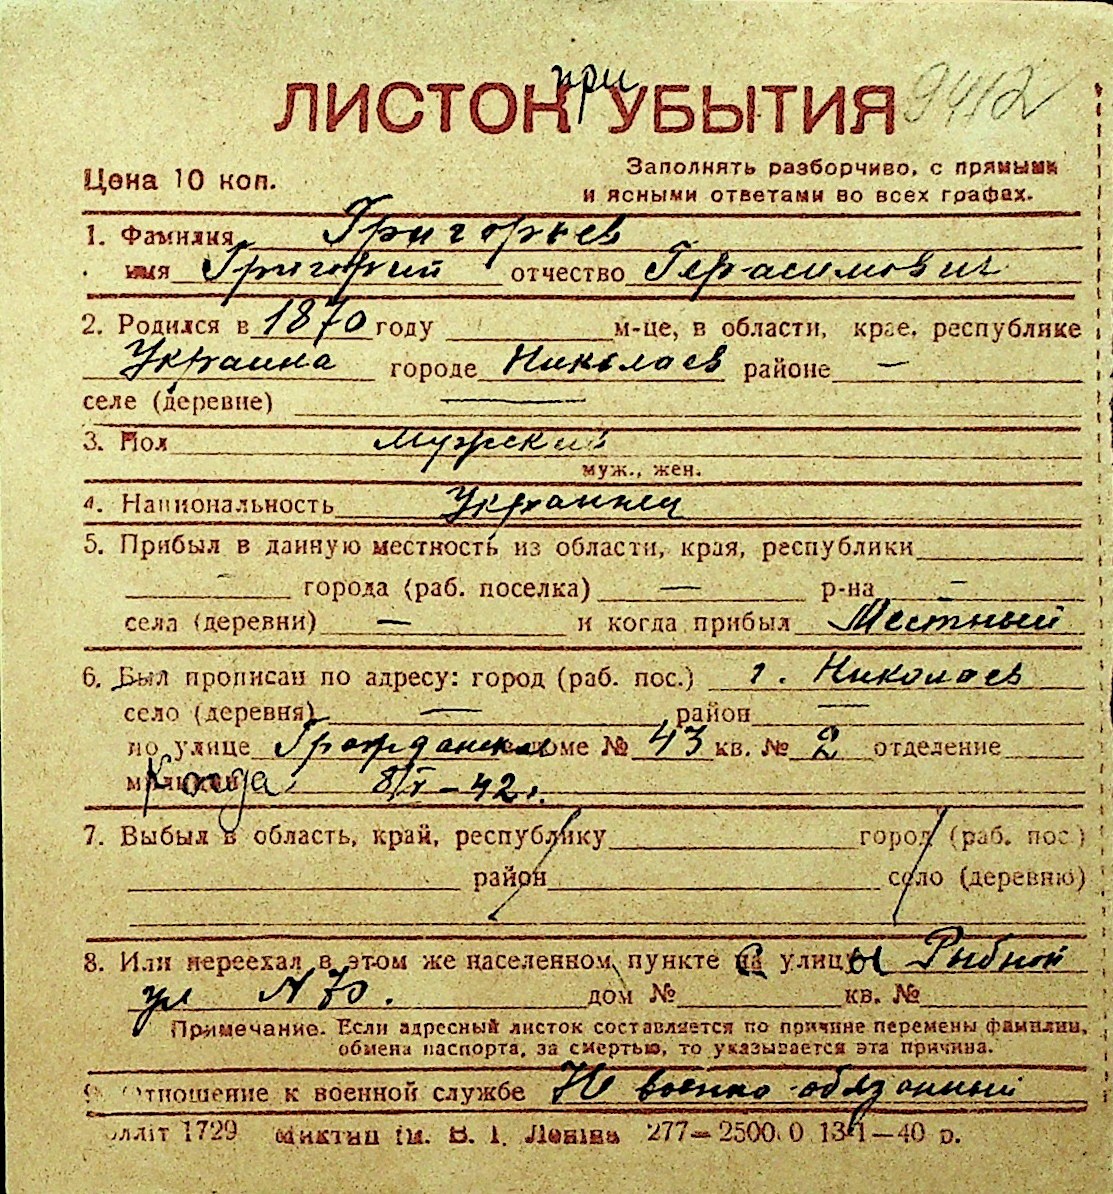 при
ЛИСТОК УБЫТИЯ 9412
Цена 10 коп.
Заполнять разборчиво, с прямыми
и ясными ответами во всех графах.
1. Фамилия Григорьев
имя Григорий отчество Герасимович
2. Родился в 1870 году м-це, в области, крае, республике
Украина городе Николаев районе —
селе (деревне) —
3. Пол мужской
муж., жен.
4. Национальность Украинец
5. Прибыл в данную местность из области, края, республики
— города (раб. поселка) — р-на —
села (деревни) — и когда прибыл Местный
6. Был прописан по адресу: город (раб. пос.) г. Николаев
село (деревня) — район —
по улице Гражданская доме № 43 кв. № 2 отделение
милиции Когда 8/I – 42 г.
7. Выбыл в область, край, республику город (раб. пос.)
район село (деревню)
8. Или переехал в этом же населенном пункте с улицы Рыбной
ул N 70. дом № кв. №
Примечание. Если адресный листок составляется по причине перемены фамилии,
обмена паспорта, за смертью, то указывается эта причина.
9. Отношение к военной службе Не военно-обязанный
1729 В. І. Леніна 277—2500 0 13-1—40 р.